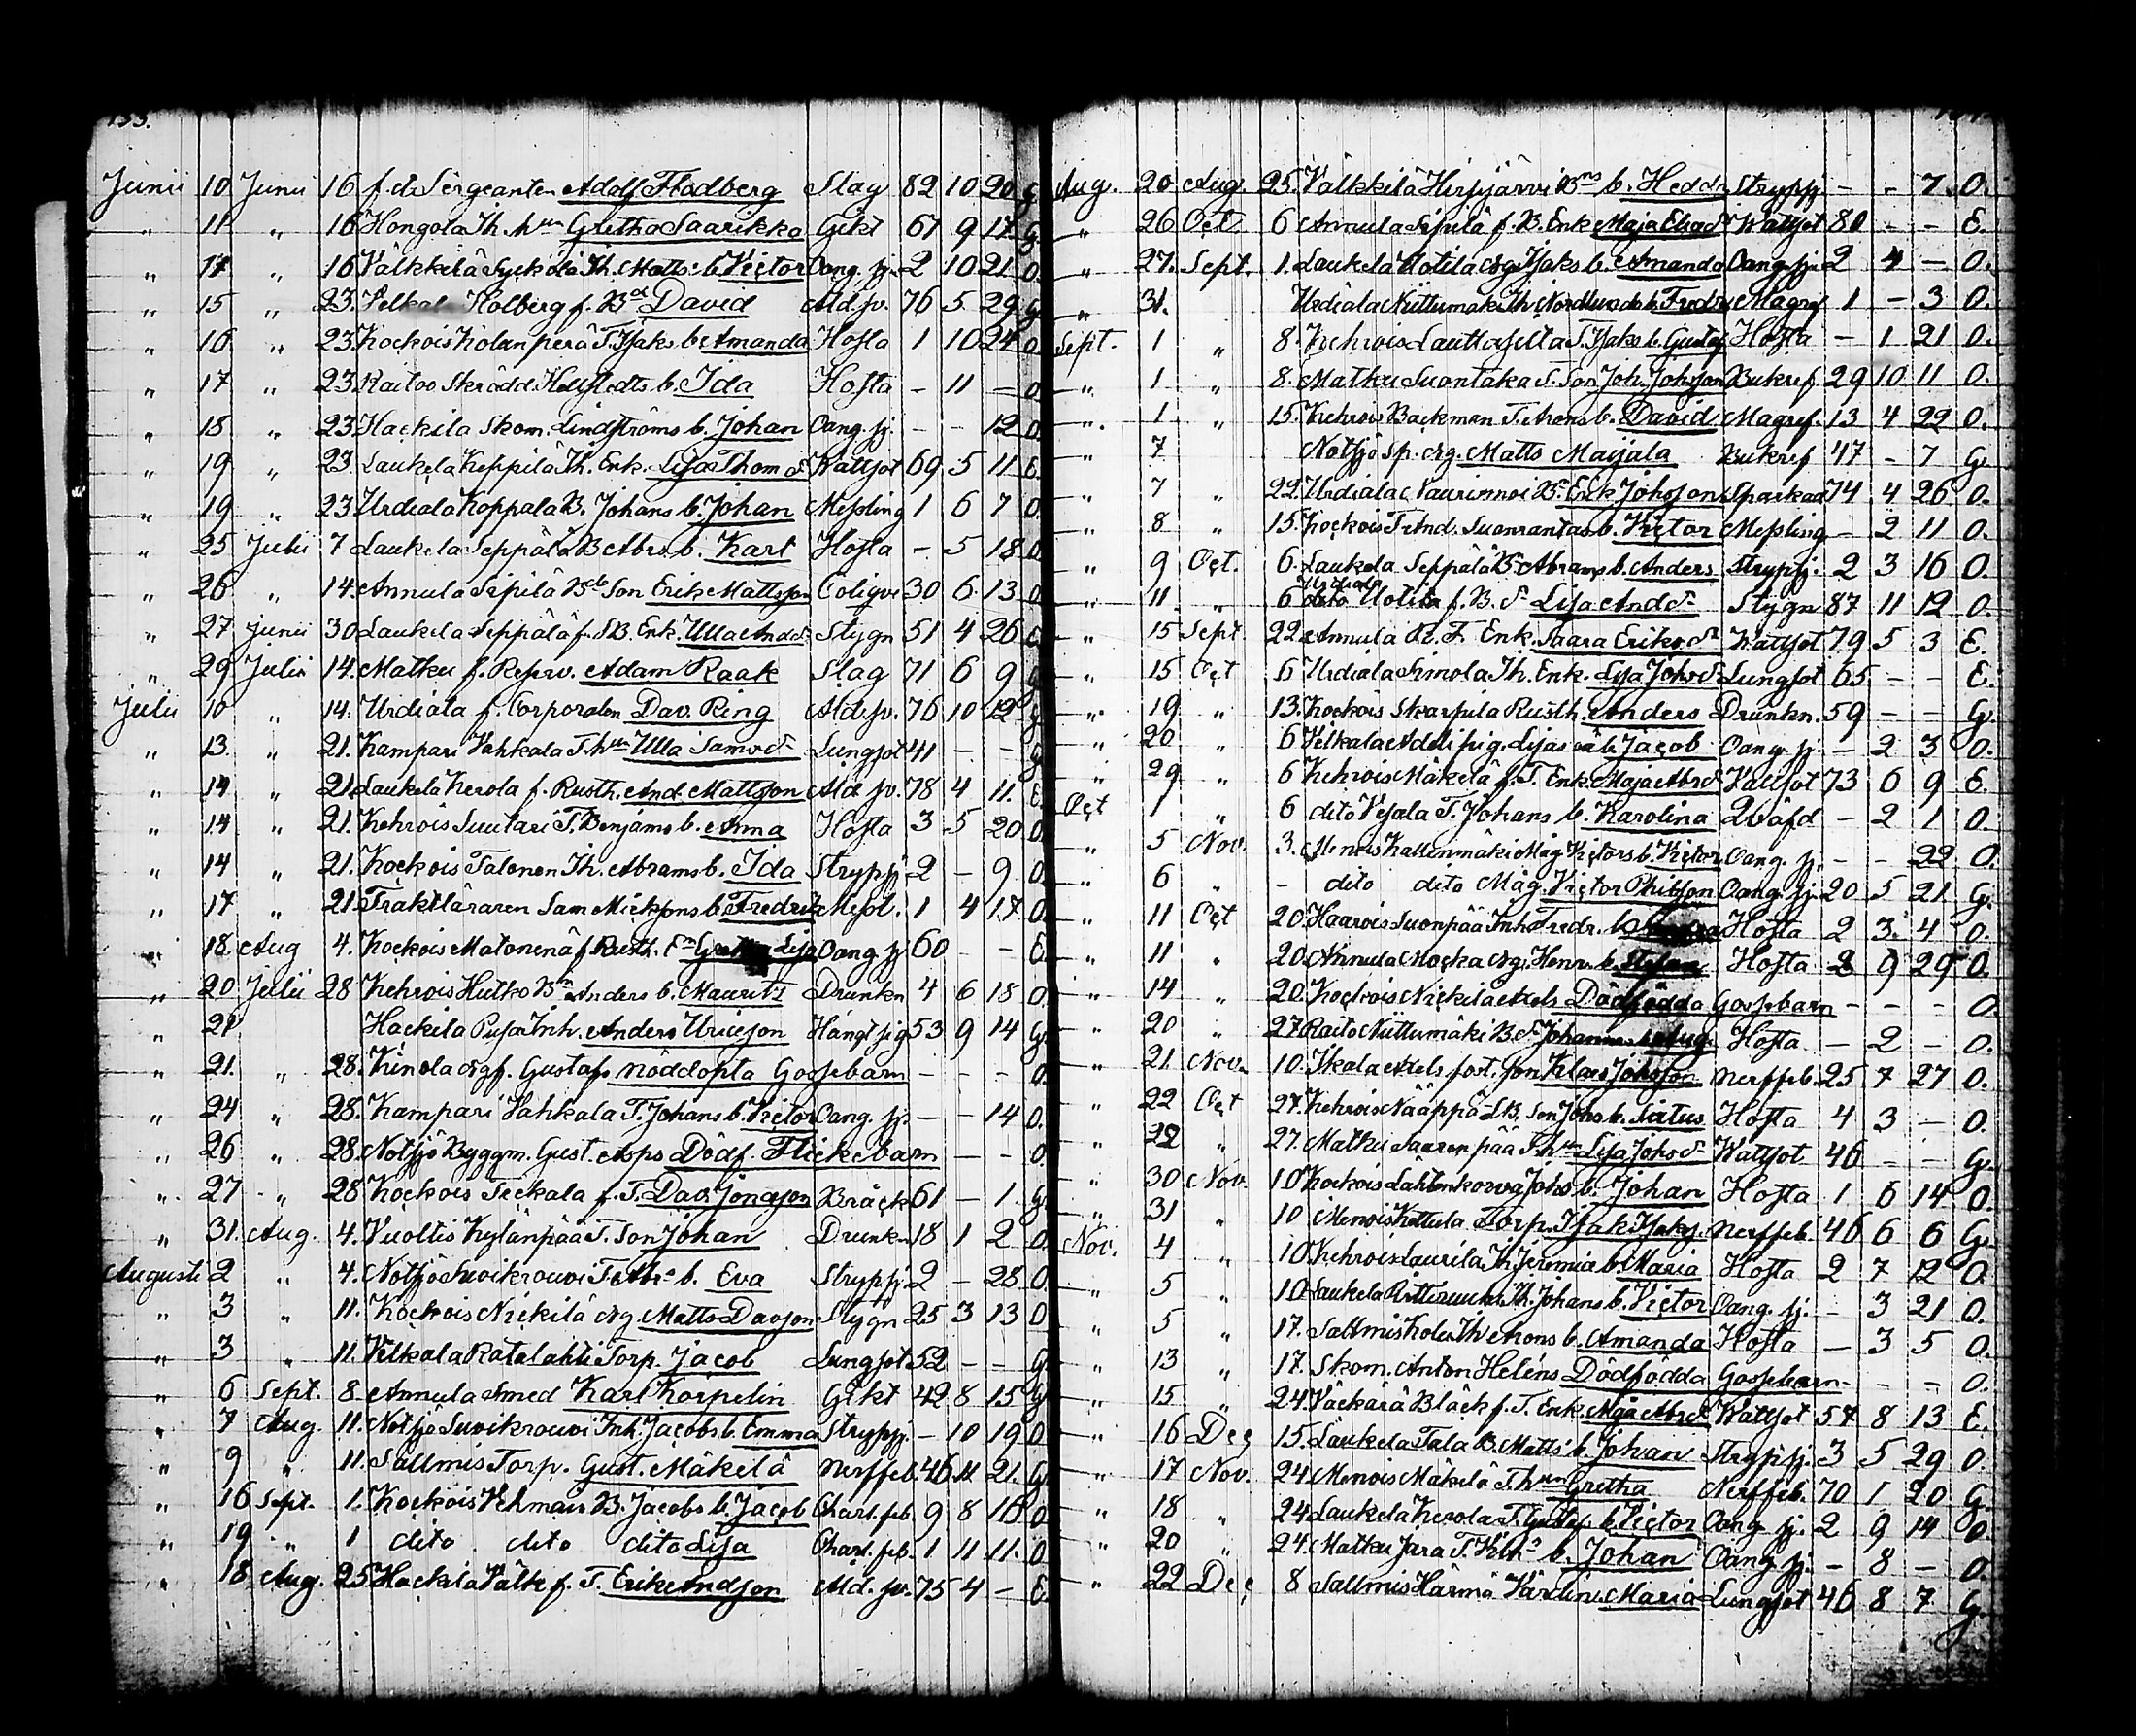 133.
Junii 10 Junii 16 f. d. Sergeanten Adolf Flodberg Slag 82 10 20 G
" 11 " 16 Hongola Th. hun Gretha Saarikko Gikt 67 9 17 G
" 14 " 16 Välkkilä Syckölä Th. Matts b. Victor Oang. sj. 2 10 21 O.
" 15 " 23. Velkala Holberg f. Bd David Ald.sv. 76 5 29 G
" 16. " 23. Kockois Kolanperä T. Isaks b. Amanda Hosta 1 10 24 O
" 17 " 23. Raitoo Skrädd. Hellstedts b. Ida Hosta - 11 - O.
" 18 " 23 Hackila Skom. Lindströms b. Johan Oang. sj. - - 12 O
" 19 " 23. Laukela Keppilä Th. Enk. Lisa Thom d. Wattsot 69 5 11 E.
" 19 " 23 Urdiala Koppala B. Johans b. Johan Messling 1 6 7 O.
" 25 Julii 7 Laukela Seppälä B Abrs. b. Karl Hosta - 5 18 O
" 26 " 14. Annula Sipilä Bds Son Erik Mattsson Coliqve 30 6 13 O
" 27 Junii 30 Laukela Seppälä f. B. Enk. Ulla And d. Stygn 51 4 26 E
" 29 Julii 14. Matku f. Reserv. Adam Raak Slag 71 6 9 G
Julii 10 " 14. Urdiala f. Corporalen Dav. Ring Ald.sv. 76 10 12 G
" 13. " 21. Kampari Vahkala T. hun Ulla Sams d. Lungsot 41 - - G
" 14 " 21. Laukela Kerola f. Rusth. And. Mattsson Ald. sv. 78 4 11. E.
" 14 " 21. Kehrois Suutari T. Benjams b. Anna Hosta 3 5 20 O
" 14 " 21. Kockois Talonen Th. Abrams b. Ida Strypsj 2 - 9 O.
" 17 " 21. Traktläraren Sam Micksons b. Fredrik Messl. 1 4 17 O.
" 18. Aug 4. Kockois Matonenä f. Rusth. E. Lisa Oang. sj 60 - - E.
" 20 Julii 28 Kehrois Hutko Bn Anders b. Mauritz Drunkn 4 6 15 O.
" 21 Hackila Pusa Inh. Anders Uricson Hängt sig 53 9 14 G
" 21. " 28. Kinola Ag f. Gustafs nöddöpta Gossebarn - - - O.
" 24 " 28. Kampari Vahkala T. Johans b. Victor Oang. sj. - - 14 O.
" 26 " 28. Notsjö Byggm. Gust. Asps Dödf. Flickebarn - - - O.
" 27 " 28 Kockois Teckala f. T. Dav. Jonasson Bräck 61 - 1. G
" 31. Aug. 4. Vuoltis Kylänpää T. Son Johan Drunkn 18 1 2 O.
Augusti 2 " 4. Notsjö Suvikrouvi T. Abrs b. Eva Strypsj. 2 - 28 O.
" 3 " 11. Kockois Nickilä Ag. Matts Davson Stygn 25 3 13 O
" 3 " 11. Velkala Ratalahti Torp. Jacob Lungsot 52 - - G
" 6 Sept. 8. Annula Smed Karl Korpelin Gikt 42 8 15 G
" 7 Aug. 11. Notsjö Suvikrouvi Inh. Jacobs b. Emma Strypsj. - 10 19 O
" 9 " 11. Sallmis Torp. Gust. Mäkelä Nerffeb. 46 11 21. G.
" 16 Sept. 1. Kockois Vehmais B. Jacobs b. Jacob Charl. feb. 9 8 16 O
" 19 " 1 dito dito dito Lisa Charl. feb. 1 11 11. O
" 18 Aug. 25 Hackila Välke f. T. Erik Andson Ald. sv. 75 4 - E.
Aug. 20 Aug. 25. Välkkilä Hirsjärvi Bns b. Hedda Strypsj. - - 7. O.
" 26 Oct 6 Annula Sipilä f. B. Enk Maja Eliad Wattsot 80 - - E.
" 27. Sept. 1. Laukela Uotila Ag. Isaks b. Amanda Oang. sj. 2 4 - O.
" 31. Urdiala Niittumäki Th Nordlunds b. Fredr. Magref 1 - 3 O.
Sept. 1 " 8. Kehrois Lauttaselta T. Isaks b. Gustaf Hosta - 1 21 O.
" 1 " 8. Matku Suontaka T. Son Joh. Johsson Bukref. 29 10 11 O.
" 1 " 15. Kehrois Backman T. Arons b. David Magref. 13 4 22 O.
" 7 Notsjö Sp. Ag. Matts Maijala Bukref 47 - 7 G.
" 7 " 22. Urdiala Naurismoi Bs. Erik Johsson Sparkad 74 4 26 O.
" 8 " 15. Kockois T. And. Suonrantas b. Victor Messling - 2 11 O.
" 9 Oct. 6. Laukela Seppälä B. Abrams b. Anders Strypsj. 2 3 16 O.
" 11. " 6 Urdiala Uotila f. B. d. Lisa And d. Stygn 87 11 12 O.
" 15 Sept 22. Annula R. T. Enk. Saara Eriks d. Wattsot 79 5 3 E.
" 15 Oct 6 Urdiala Simola Th. Enk. Lisa Johs d. Lungsot 65 - - E.
" 19 " 13. Kockois Skarpila Rusth. Anders Drunkn. 59 - - G.
" 20 " 6 Velkala Adeli pig. Lisas oä b. Jacob Oang. sj. - 2 3 O.
" 29 " 6 Kehrois Mäkelä f. T. Enk Maja Abrs d. Vattsot 73 6 9 E.
Oct 1 " 6 dito Vesala T. Johans b. Karolina - 2 1 O.
" 5 Nov. 3. Menois Kallenmäki Måg Victors b. Victor Oang. sj. - - 22 O.
" 6 " - dito dito Måg. Victor Philsson Oang. sj. 20 5 21. G.
" 11 Oct 20. Haarois Suonpää Inh Fredr. b. Hosta 2 3. 4 O.
" 11 " 20. Annula Mocka Ag. Henr. b. Stefan Hosta 2 9 29 O.
" 14 " 20. Kockois Nickilä Axels Dödfödda Gossebarn - - - O.
" 20 " 27. Raito Niittumäki B. d. Johannas b. Aug. Hosta - 2 - O.
" 21 Nov. 10. Ikala Axels fost. son Klas Johsson Nerffeb. 25 7 27 O.
" 22 Oct 27. Kehrois Nääppä B. Son Johs b. Titus Hosta 4 3 - O.
" 22 " 27. Matku Saarenpää T. hun Lisa Johs d. Wattsot 46 - - G.
" 30 Nov. 10 Kockois Lähtenkorva Johs b. Johan Hosta 1 6 14 O.
" 31 " 10 Menois Kottula Torp. Isak Isaks. Nerffeb. 46 6 6 G.
Nov. 4 " 10 Kehrois Laurila Th Jeremia b. Maria Hosta 2 7 12 O.
" 5 " 10 Laukela Th. Johans b. Victor Oang. sj. - 3 21 O.
" 5 " 17. Sallmis Kolu Th Arons b. Amanda Hosta - 3 5 O.
" 13 " 17. Skom. Anton Heléns Dödfödda Gossebarn - - - O.
" 15 " 24. Väckärä Bläck f. T. Enk. Maja Abrs d Wattsot 57 8 13 E.
" 16 Dec 15. Laukela Tala B. Matts b. Johan Strypsj. 3 5 29 O.
" 17 Nov. 24. Menois Mäkelä T. hun Gretha Nerffeb. 70 1 20 G.
" 18 " 24 Laukela Kerola T. Gustafs b. Victor Oang. sj. 2 9 14 O.
" 20 " 24. Matku Jara T. b. Johan Oang. sj. - 8 - O.
" 22 Dec 8 Sallmis Härmä Värdinn. Maria Lungsot 46 8 7 G.